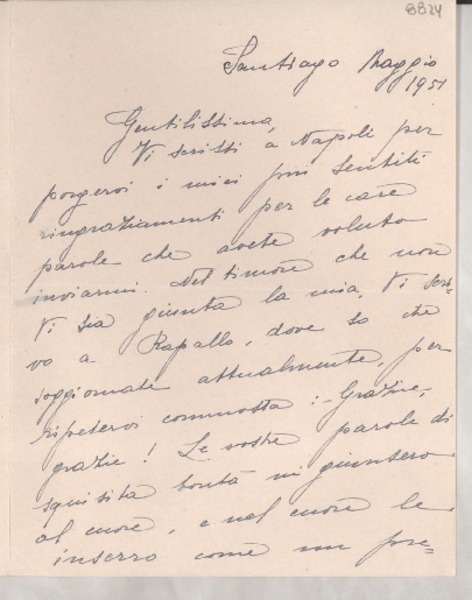 8824
Santiago Maggio
1951
Gentilissima,
Vi scrissi a Napoli per
porgervi i miei più sentiti
ringraziamenti per le care
parole che avete voluto
inviarmi. Nel timore che non
Vi sia giunta la mia, Vi scri-
vo a Rapallo, dove so che
soggiornate attualmente, per
ripetervi commossa :- Grazie,
grazie! Le vostre parole di
squisita bontà mi giunsero
al cuore, e nel cuore le
inserro come un pre=